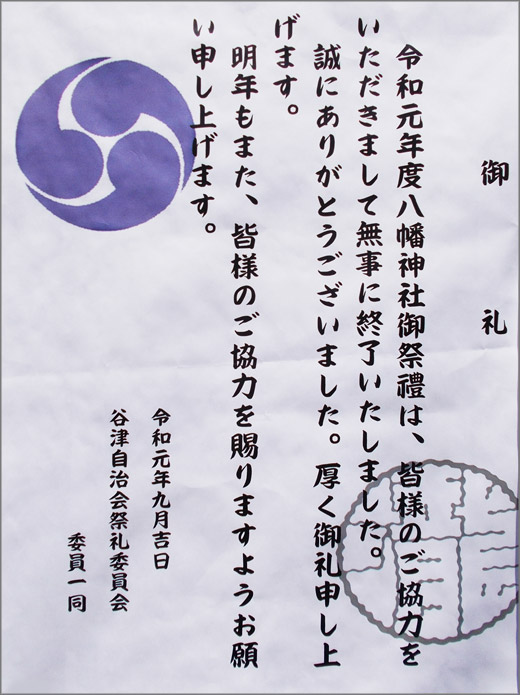 御礼
令和元年度八幡神社御祭禮は、皆様のご協力を
いただきまして無事に終了いたしました。
誠にありがとうございました。厚く御礼申し上
げます。
明年もまた、皆様のご協力を賜りますようお願
い申し上げます。
令和元年九月吉日
谷津自治会祭礼委員会
委員一同